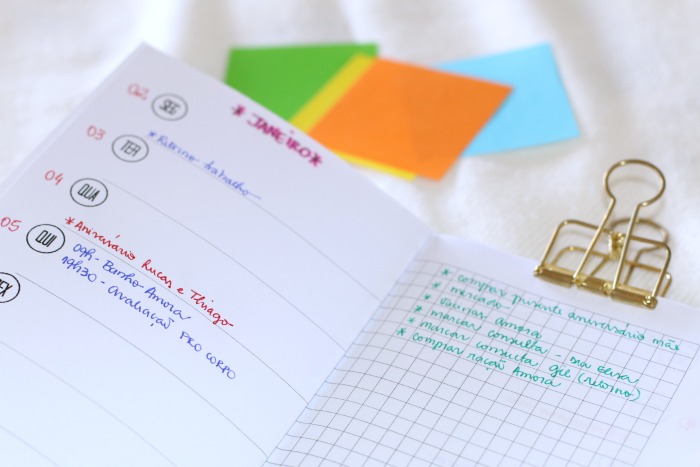 * JANEIRO *
02 SEG
03 TER
* Retorno trabalho
04 QUA
05 QUI
* Aniversário Lucas e Thiago
09h - Banho Amora
19h30 - Avaliação PRO CORPO
EX
* comprar presente aniversário mãe
* mercado
* vacinar Amora
* marcar consulta - Dra
* marcar consulta (retorno)
* comprar ração Amora